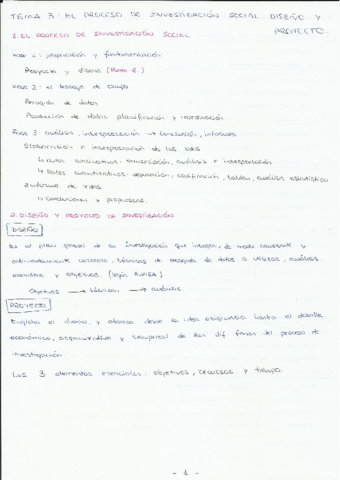 TEMA 3: EL PROCESO DE INVESTIGACIÓN SOCIAL. DISEÑO Y
PROYECTO.
1. EL PROCESO DE INVESTIGACIÓN SOCIAL
Fase 1: preparación y fundamentación
Proyecto y diseño (Punto 2.)
Fase 2: el trabajo de campo
Recogida de datos
Producción de datos, planificación y coordinación
Fase 3: análisis, interpretación → conclusión, informes
Elaboración e interpretación de los rdos
↳ Datos cualitativos: transcripción, análisis e interpretación
↳ Datos cuantitativos: depuración, codificación, tablas, análisis estadístico
Informe de rdos
↳ Conclusiones y propuestas.
2. DISEÑO Y PROYECTO DE INVESTIGACIÓN
DISEÑO
Es el plan general de la investigación que integra, de modo coherente y
ordenadamente correcto, técnicas de recogida de datos a utilizar, análisis
previstos y objetivos. (según ALVIRA)
Objetivos → técnicas → análisis.
PROYECTO
Engloba el diseño, y abarca desde la idea originaria hasta el detalle
económico, organizativo y temporal de las dif fases del proceso de
investigación
Los 3 elementos esenciales: objetivos, recursos y tiempo.
- 1 -